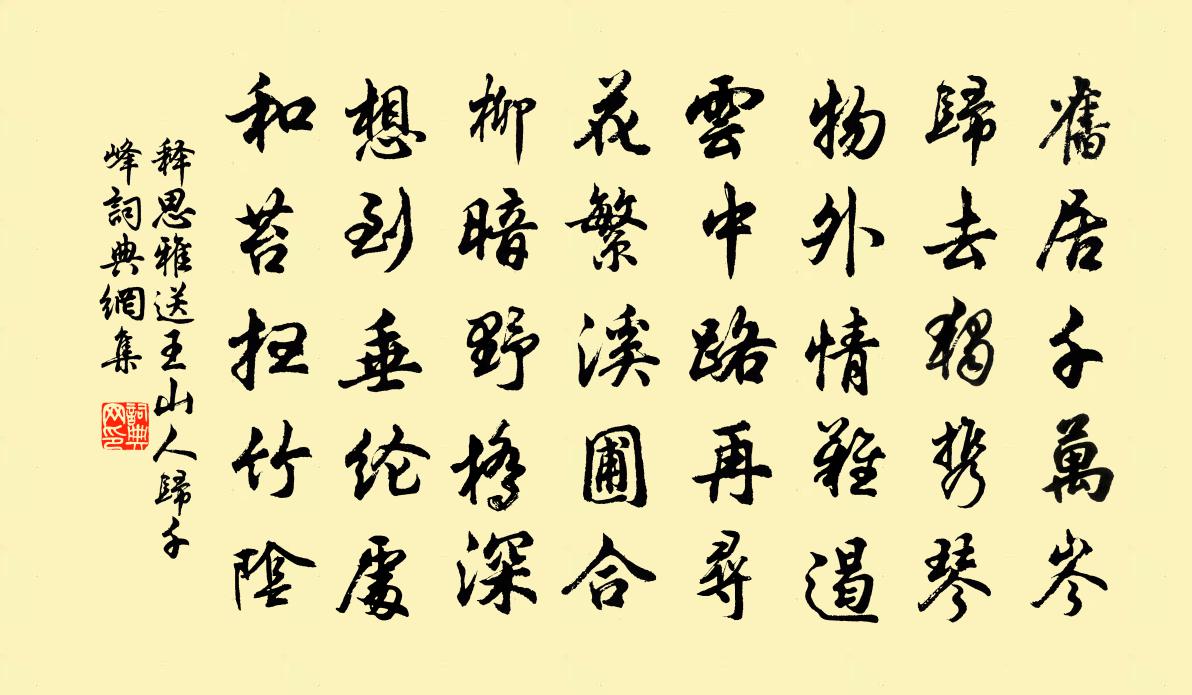 舊居千萬岑
歸去獨携琴
物外情難遏
雲中路再尋
花繁溪圃合
柳暗野橋深
想到垂纶處
和苔扫竹陰
释思雅送王山人歸千
峰詞典網集
詞典
网印